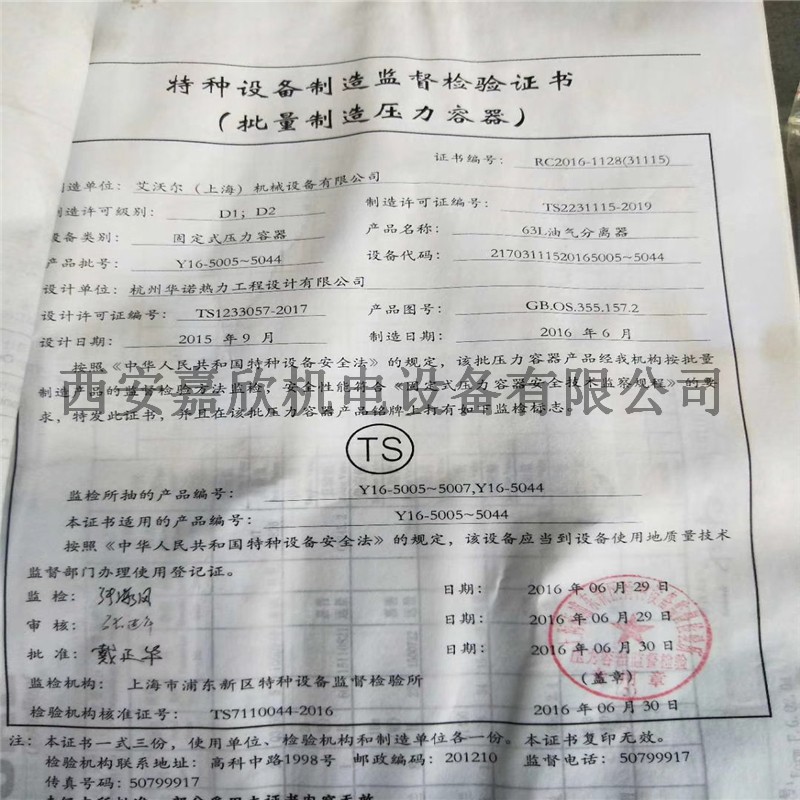 特种设备制造监督检验证书
（批量制造压力容器）
证书编号： RC2016-1128(31115)
制造单位： 艾沃尔（上海）机械设备有限公司
制造许可级别： D1；D2 制造许可证编号： TS2231115-2019
设备类别： 固定式压力容器 产品名称： 63L油气分离器
产品批号： Y16-5005~5044 设备代码： 21703111520165005~5044
设计单位： 杭州华诺热力工程设计有限公司
设计许可证编号： TS1233057-2017 产品图号： GB.OS.355.157.2
设计日期： 2015 年 9 月 制造日期： 2016 年 6 月
按照《中华人民共和国特种设备安全法》的规定，该批压力容器产品经我机构按批量
制造产品的监督检验方法监检，安全性能符合《固定式压力容器安全技术监察规程》的要
西安嘉欣机电设备有限公司
求，特发此证书，并且在该批压力容器产品铭牌上打有如下监检标志：
TS
监检所抽的产品编号： Y16-5005~5007,Y16-5044
本证书适用的产品编号： Y16-5005~5044
按照《中华人民共和国特种设备安全法》的规定，该设备应当到设备使用地质量技术
监督部门办理使用登记证。
监 检： 日期： 2016 年 06 月 29 日
审 核： 日期： 2016 年 06 月 29 日
批 准： 戴正华 日期： 2016 年 06 月 30 日
监检机构： 上海市浦东新区特种设备监督检验所 （盖章）
检验机构核准证号： TS7110044-2016 2016 年 06 月 30 日
注：本证书一式三份，使用单位、检验机构和制造单位各一份。本证书复印无效。
检验机构联系地址：高科中路1998号 邮政编码：201210 监督电话：50799917
传真号码：50799917